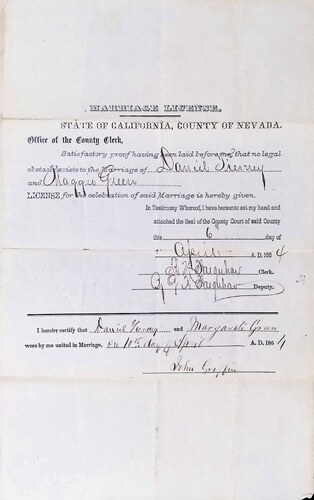 MARRIAGE LICENSE.
STATE OF CALIFORNIA, COUNTY OF NEVADA.
Office of the County Clerk,
Satisfactory proof having been laid before me, that no legal
obstacle exists to the Marriage of Daniel Tierney
and Maggie Green
LICENSE for the celebration of said Marriage is hereby given.
In Testimony Whereof, I have hereunto set my hand and
attached the Seal of the County Court of said County
this 6 day of
April A. D. 186 4
Farquhar Clerk.
Farquhar Deputy.
I hereby certify that Daniel and Margarete Green
were by me united in Marriage, on day of April A. D. 186 4
John Griffin